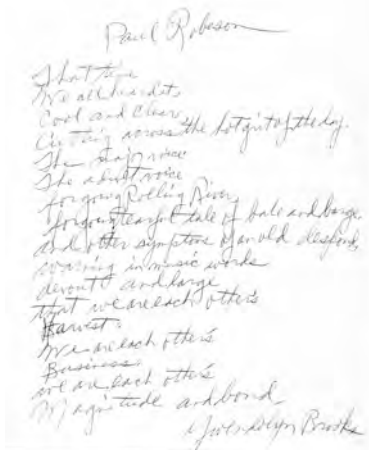 Paul Robeson
That time
We all heard it,
Cool and Clear,
Cutting across the hot grit of the day.
The major voice
The adult voice
forgoing Rolling River,
forgoing tearful tale of bale and barge
and other symptoms of an old despond,
warning in music-words
devout and large
that we are each other's
Harvest:
We are each other's
Business:
we are each other's
Magnitude and bond.
Gwendolyn Brooks